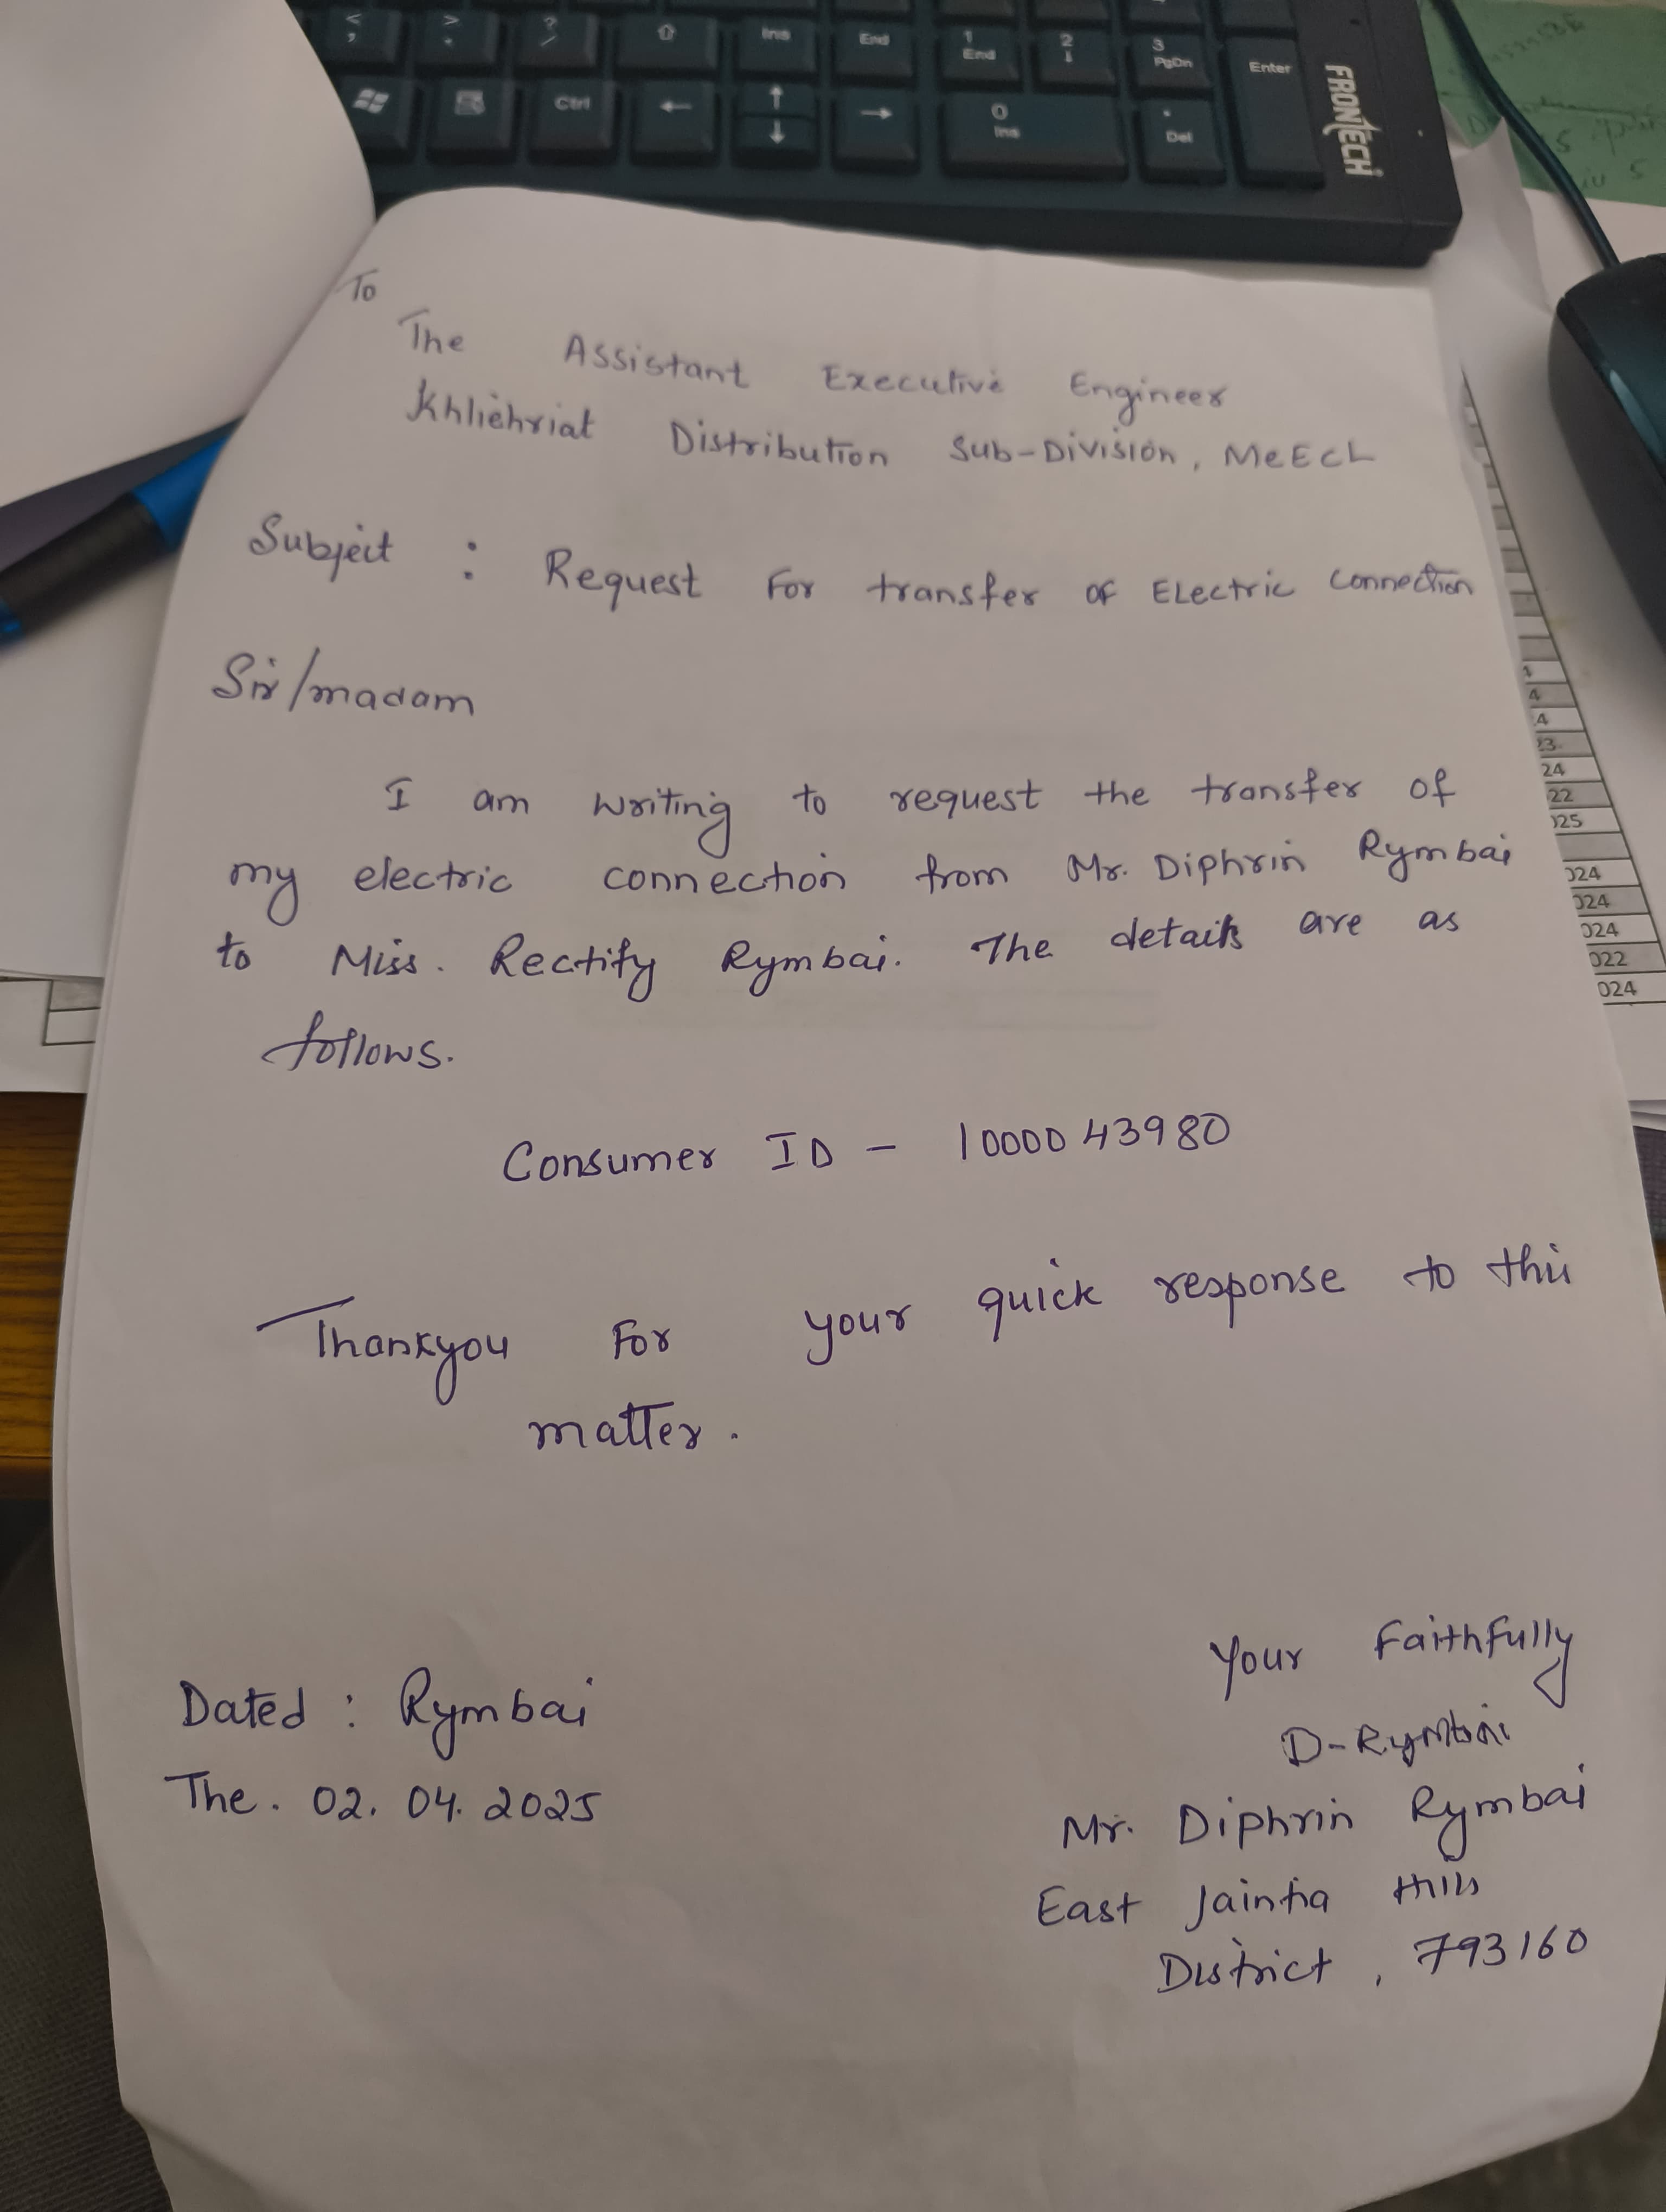 < ,
> .
? /
Ins
End
1 End
2
3 PgDn
Enter
Ctrl
0 Ins
. Del
FRONTECH
To
The Assistant Executive Engineer
Khliehriat Distribution Sub-Division, MeECL
Subject : Request For transfer of Electric Connection
Sir/madam
I am writing to request the transfer of
my electric connection from Mr. Diphrin Rymbai
to Miss. Rectify Rymbai. The details are as
follows.
Consumer ID - 1000043980
Thankyou For your quick response to this
matter.
Your Faithfully
D-Rymbai
Mr. Diphrin Rymbai
East Jaintia Hills
District, 793160
Dated : Rymbai
The. 02.04.2025
4
4
23
24
22
025
024
024
024
022
024